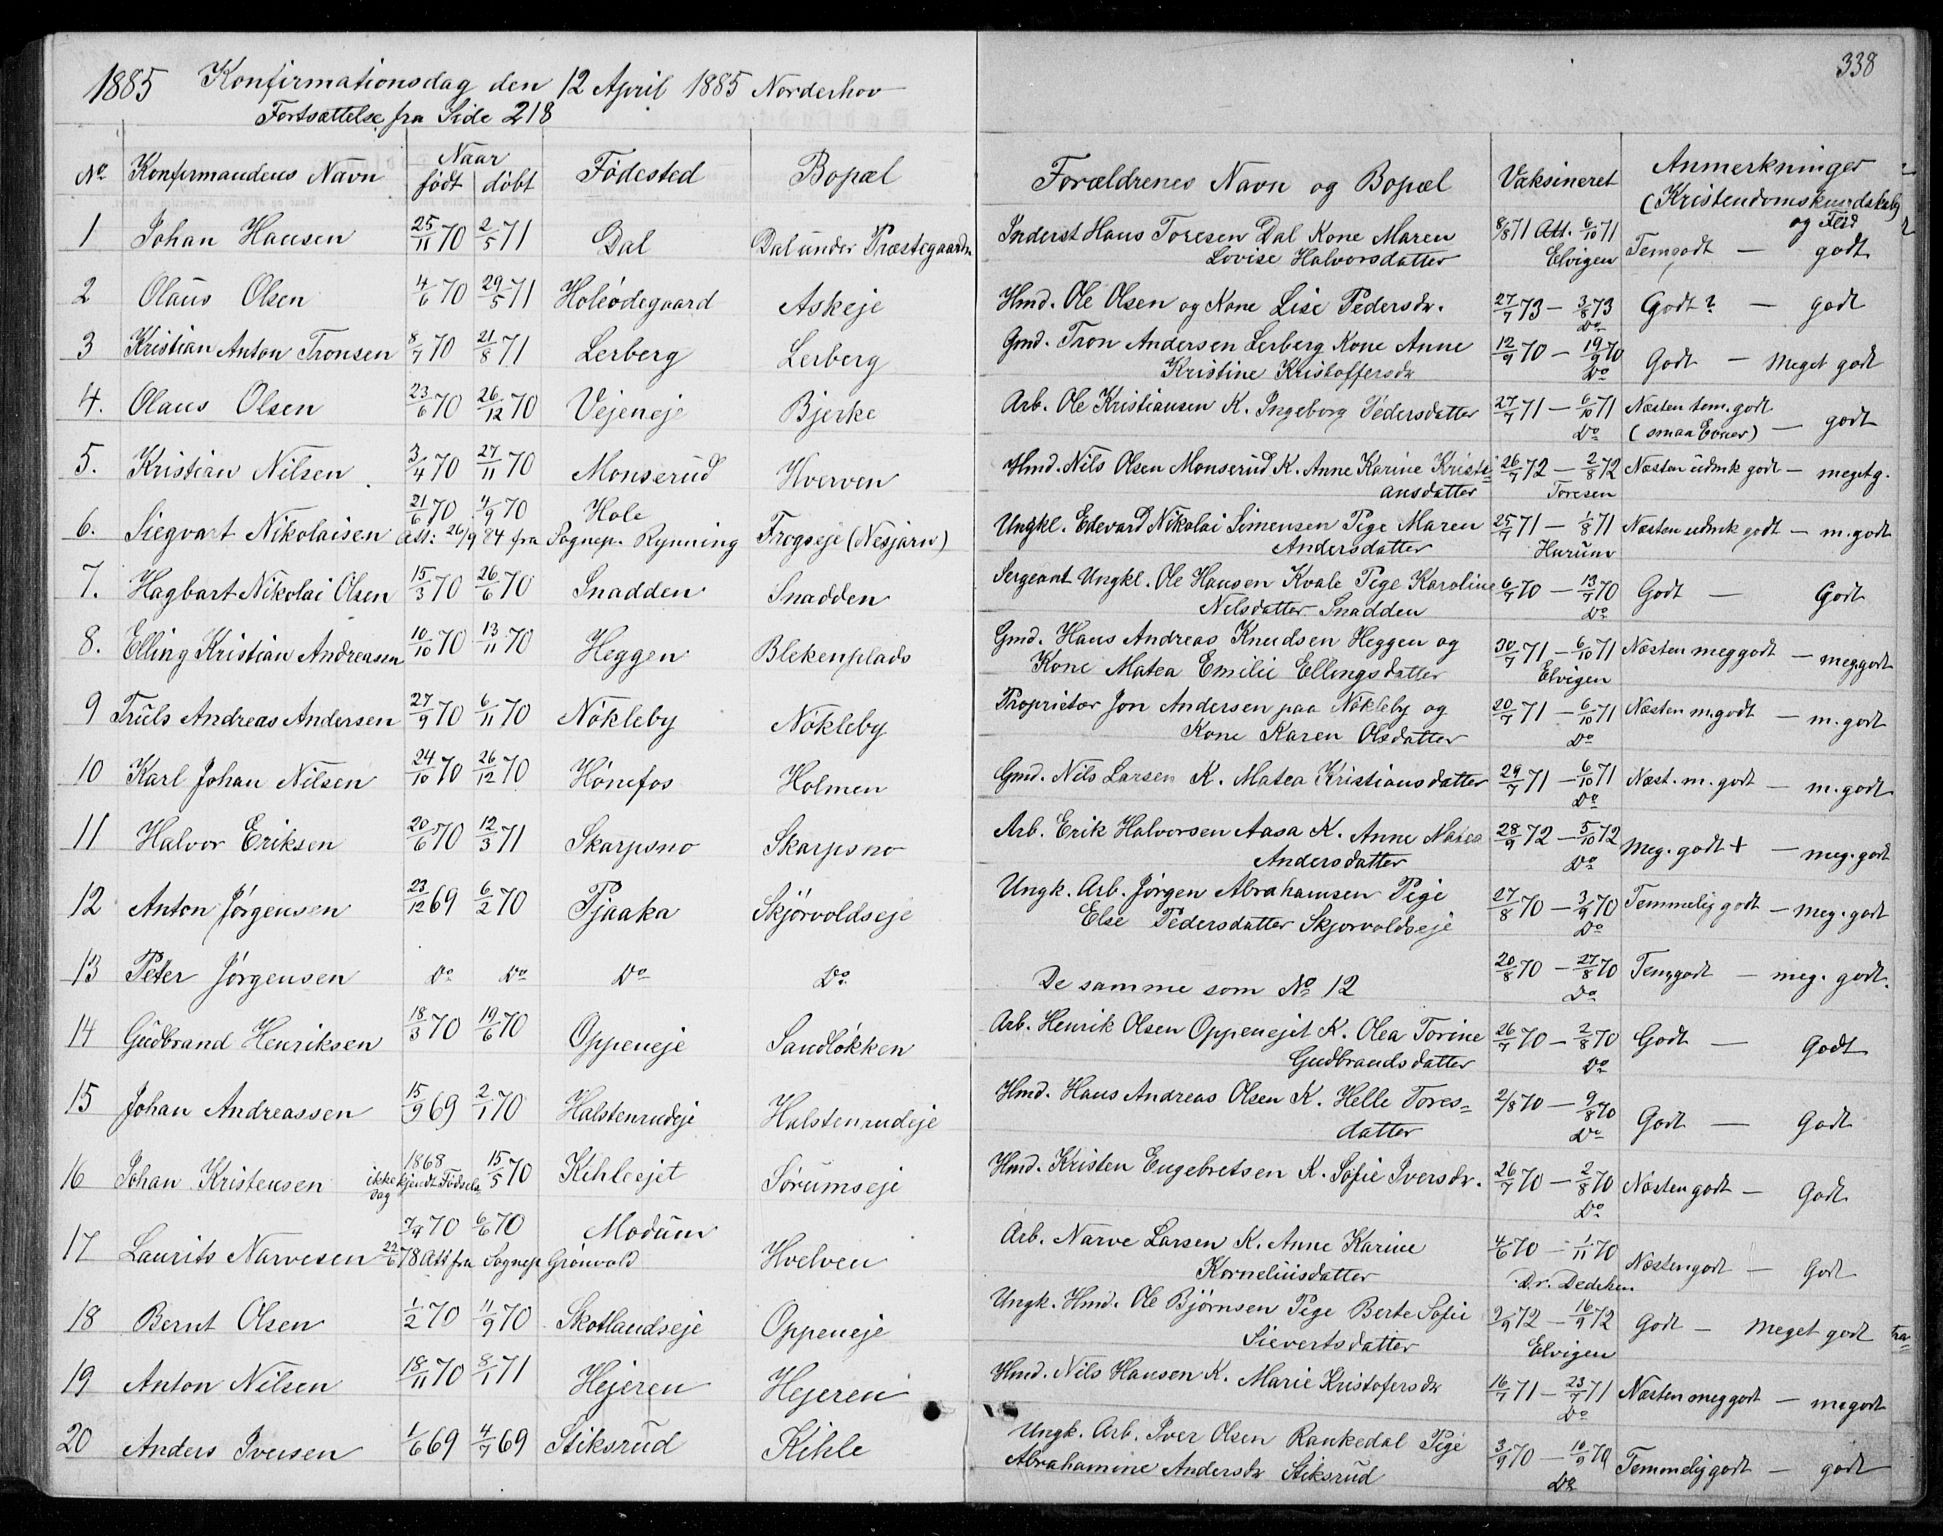 1885 Konfirmationsdag den 12 April 1885 Norderhov
Fortsættelse fra Side 218
338
No Konfirmandens Navn Naar født døbt Fødested Bopæl Forældrenes Navn og Bopæl Vaksineret Anmerkninger (Kristendomskundskab og Flid
1 Johan Hansen 25/11 70 2/5 71 Dal Dal under Præstegaarden Inderst Hans Toresen Dal Kone Maren
Lovise Halvorsdatter 8/8 71 Att. 6/10 71 Elvigen Temgodt — godt
2 Olaus Olsen 4/6 70 29/5 71 Holeødegaard Askeje Hmd. Ole Olsen og Kone Lise Pedersdr. 27/7 73 — 3/8 73 Do Godt? — godt
3 Kristian Anton Tronsen 8/7 70 21/8 71 Lerberg Lerberg Gmd. Tron Andersen Lerberg Kone Anne
Kristine Kristoffersdr 12/9 70 — 19/9 70 Do Godt — Meget godt
4. Olaus Olsen 23/6 70 26/12 70 Vejeneje Bjerke Arb. Ole Kristiansen K. Ingeborg Pedersdatter 27/7 71 — 6/10 71 Do Næsten tem. godt
(smaa Evner) — godt
5. Kristian Nilsen 3/4 70 27/11 70 Monserud Hverven Hmd. Nils Olsen Monserud K. Anne Karine Kristi=
ansdatter 26/7 72 — 2/8 72 Toresen Næsten udmk godt — meget g.
6. Siegvart Nikolaisen 21/6 70 4/9 70 Hole
Att: 26/9 84 fra Sognep. Rynning Frogseje (Nesjarn) Ungkl. Edevard Nikolai Simensen Pige Maren
Andersdatter 25/7 71 — 1/8 71 Hurum Næsten udmk godt — m. godt
7. Hagbart Nikolai Olsen 15/3 70 26/6 70 Snadden Snadden Sergeant Ungkl. Ole Hansen Kvale Pige Karoline
Nilsdatter Snadden 6/7 70 — 13/7 70 Do Godt — Godt
8. Elling Kristian Andreasen 10/10 70 13/11 70 Heggen Blekenplads Gmd. Hans Andreas Knudsen Heggen og
Kone Matea Emilie Ellingsdatter 30/7 71 — 6/10 71 Elvigen Næsten meg godt — meg. godt
9 Truls Andreas Andersen 27/9 70 6/11 70 Nökleby Nökleby Proprietær Jon Andersen paa Nökleby og
Kone Karen Olsdatter 20/7 71 — 6/10 71 Do Næsten m. godt — m. godt
10 Karl Johan Nilsen 24/10 70 26/12 70 Hönefos Holmen Gmd. Nils Larsen K. Matea Kristiansdatter 29/7 71 — 6/10 71 Do Næst. m. godt — m. godt
11 Halvor Eriksen 20/6 70 12/3 71 Skarpsno Skarpsno Arb. Erik Halvorsen Aasa K. Anne Matea
Andersdatter 28/9 72 — 5/10 72 Do Meg. godt + — meg. godt
12 Anton Jörgensen 23/12 69 6/2 70 Tjaaka Skjörvoldseje Ungk. Arb. Jörgen Abrahamsen Pige
Else Pedersdatter Skjorvoldseje 27/8 70 — 3/9 70 Do Temmelig godt — meg. godt
13 Peter Jörgensen Do Do Do Do. De samme som No 12 20/8 70 — 27/8 70 Do Tem. godt — meg. godt.
14 Gudbrand Henriksen 18/3 70 19/6 70 Oppeneje Sandløkken Arb. Henrik Olsen Oppenejet K. Olea Torine
Gudbrandsdatter 26/7 70 — 2/8 70 Do Godt — Godt
15 Johan Andreassen 15/9 69 2/1 70 Halstenrudeje Halstenrudeje Hmd. Hans Andreas Olsen K. Helle Tores=
datter 2/8 70 — 9/8 70 Do Godt — Godt
16 Johan Kristensen 1868 ikke kjendt Fødselsdag 15/5 70 Kihleejet Sörumseje Hmd. Kristen Engebretsen K. Sofie Iversdr. 26/7 70 — 2/8 70 Do Næsten godt — Godt
17 Laurits Narvesen 7/4 70 6/6 70 Modum
22/6 78 Att fra Sognep Grönvold Hvelven Arb. Narve Larsen K. Anne Karine
Korneliusdatter 4/6 70 — 1/11 70 Dr. Dedeken Næsten godt — Godt
18 Bernt Olsen 1/2 70 11/9 70 Skotlandseje Oppeneje Ungk. Hmd. Ole Bjørnsen Pige Berte Sofie
Sievertsdatter 9/9 72 — 16/9 72 Elvigen Godt — Meget godt
19 Anton Nilsen 18/11 70 8/1 71 Hejeren Hejeren Hmd. Nils Hansen K. Marie Kristofersdr 16/7 71 — 23/7 71 Do Næsten meg godt — megodt
20 Anders Iversen 1/6 69 4/7 69 Stiksrud Kihle Ungk. Arb. Iver Olsen Rankedal Pige
Abrahamine Andersdr Stiksrud 3/9 70 — 10/9 70 Do Temmelig godt — godt